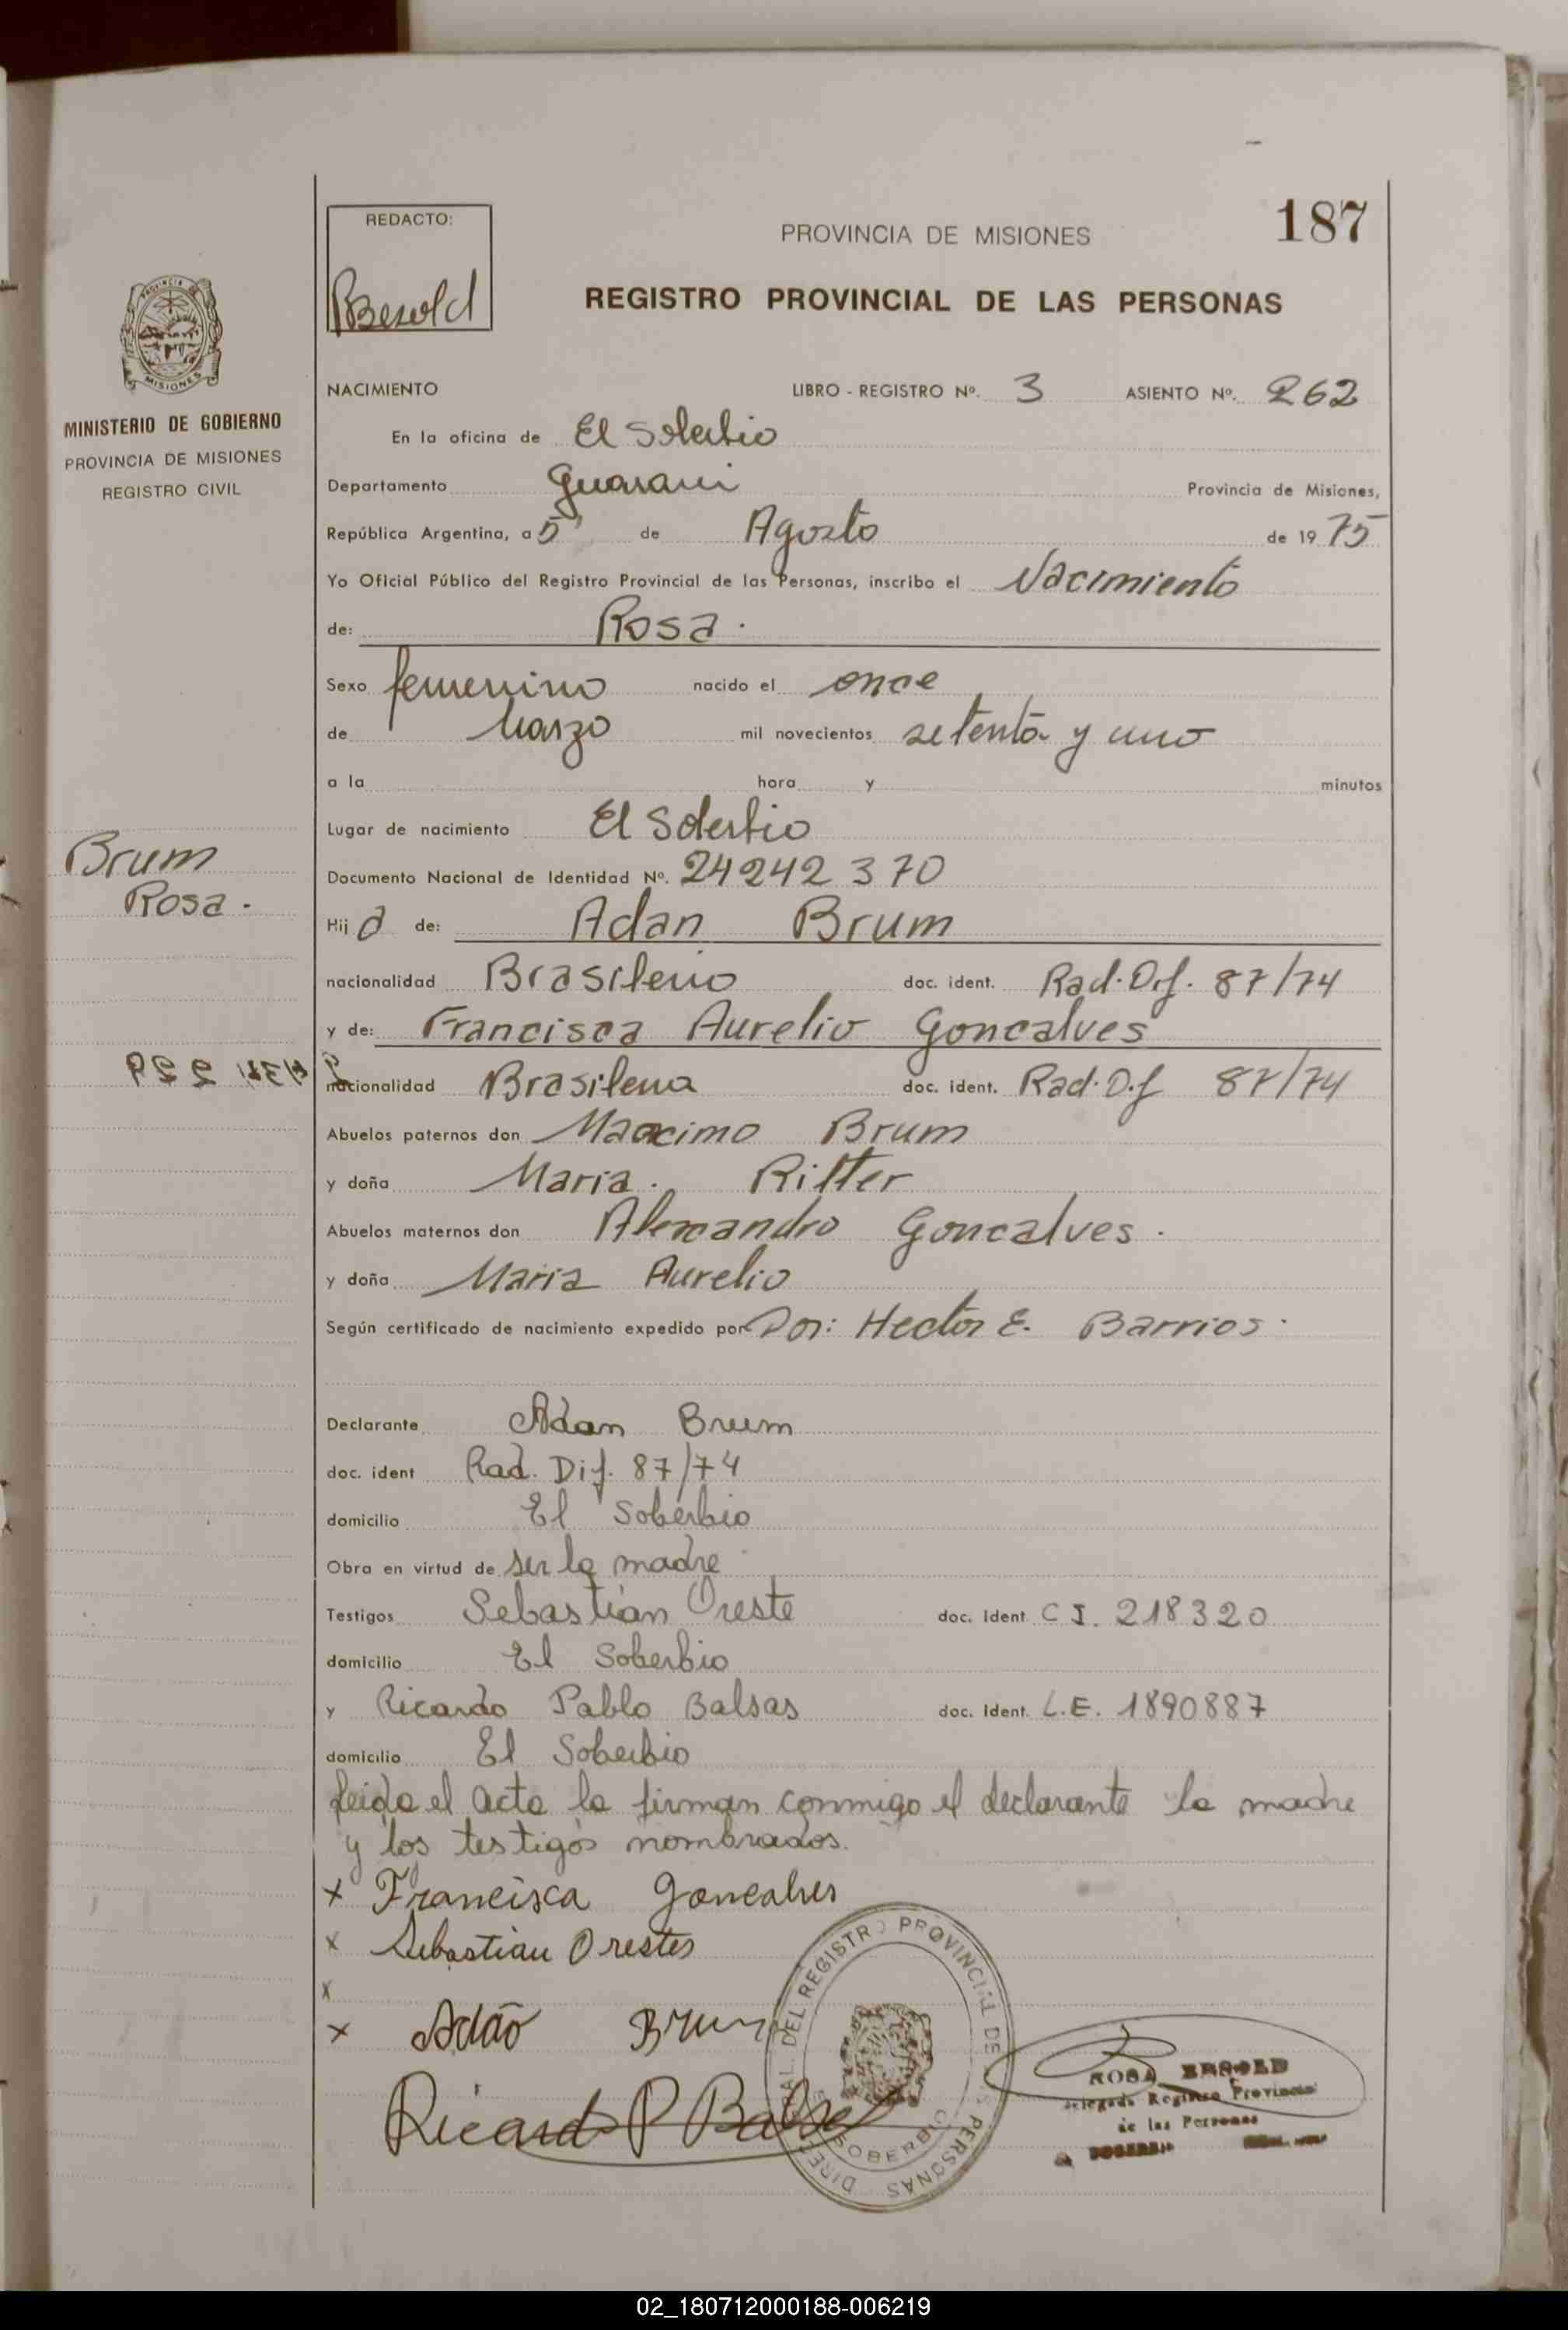 187
REDACTO:
Besold
PROVINCIA DE MISIONES
REGISTRO PROVINCIAL DE LAS PERSONAS
MISIONES
MINISTERIO DE GOBIERNO
PROVINCIA DE MISIONES
REGISTRO CIVIL
NACIMIENTO LIBRO - REGISTRO Nº. 3 ASIENTO Nº. 262
En la oficina de El Soberbio
Departamento Guarani Provincia de Misiones,
República Argentina, a 5 de Agosto de 19 75
Yo Oficial Público del Registro Provincial de las Personas, inscribo el Nacimiento
de: Rosa.
Sexo femenino nacido el once
de Marzo mil novecientos setenta y uno
a la hora y minutos
Lugar de nacimiento El Soberbio
Brum
Rosa.
Documento Nacional de Identidad Nº. 24242370
Hija de: Adan Brum
nacionalidad Brasileno doc. ident. Rad. Dif. 87/74
y de: Francisca Aurelio Goncalves
nacionalidad Brasilena doc. ident. Rad. D.f 87/74
Abuelos paternos don Maximo Brum
y doña Maria. Ritter
Abuelos maternos don Alexandro Goncalves.
y doña Maria Aurelio
Según certificado de nacimiento expedido por Dor: Hector E. Barrios.
Declarante Adan Brum
doc. ident Rad. Dif. 87/74
domicilio El Soberbio
Obra en virtud de ser la madre
Testigos Sebastian Oreste doc. Ident C I. 218320
domicilio El Soberbio
y Ricardo Pablo Balsas doc. Ident. L.E. 1890887
domicilio El Soberbio
Leida el acta la firman conmigo el declarante la madre
y los testigos nombrados.
x Francisca Goncalves
x Sebastian Orestes
x
x Adão Brum
Ricardo P Balsa
DIREC. GRAL. DEL REGISTRO PROVINCIAL DE LAS PERSONAS
SOBERBIO
ROSA BESOLD
Delegada Registro Provincial
de las Personas
02_180712000188-006219